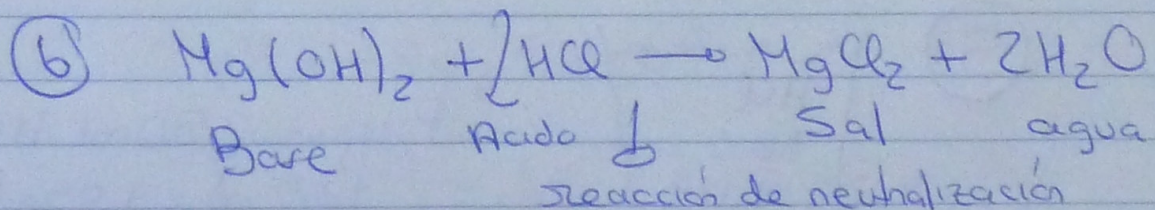 6 Mg(OH)₂ + 2HCl → MgCl₂ + 2H₂O
Base Acido Sal agua
reacción de neutralización